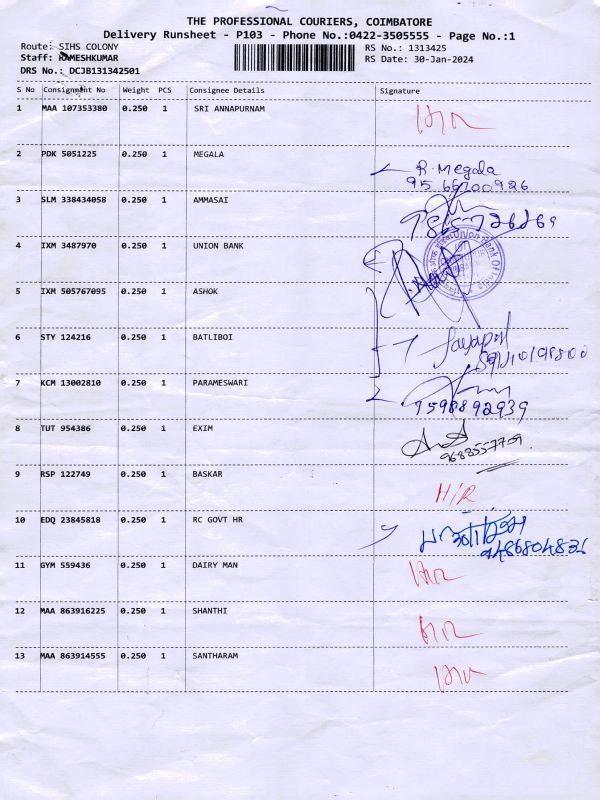 THE PROFESSIONAL COURIERS, COIMBATORE
Delivery Runsheet - P103 - Phone No.:0422-3505555 - Page No.:1
Route: SIHS COLONY
RS No.: 1313425
Staff: RAMESHKUMAR
RS Date: 30-Jan-2024
DRS No.: DCJB131342501
S No Consignment No Weight PCS Consignee Details Signature
1 MAA 107353380 0.250 1 SRI ANNAPURNAM
2 PDK 5051225 0.250 1 MEGALA R. Megala
3 SLM 338434058 0.250 1 AMMASAI
4 IXM 3487970 0.250 1 UNION BANK
5 IXM 505767095 0.250 1 ASHOK
6 STY 124216 0.250 1 BATLIBOI
7 KCM 13002810 0.250 1 PARAMESWARI
7598892939
8 TUT 954386 0.250 1 EXIM
9 RSP 122749 0.250 1 BASKAR H/R
10 EDQ 23845818 0.250 1 RC GOVT HR
9486804826
11 GYM 559436 0.250 1 DAIRY MAN
12 MAA 863916225 0.250 1 SHANTHI
13 MAA 863914555 0.250 1 SANTHARAM